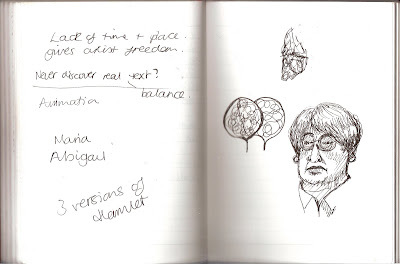 Lack of time + place.
gives artist freedom.
Never discover real text?
balance.
Animation
Maria
Abigail
3 versions of
Hamlet